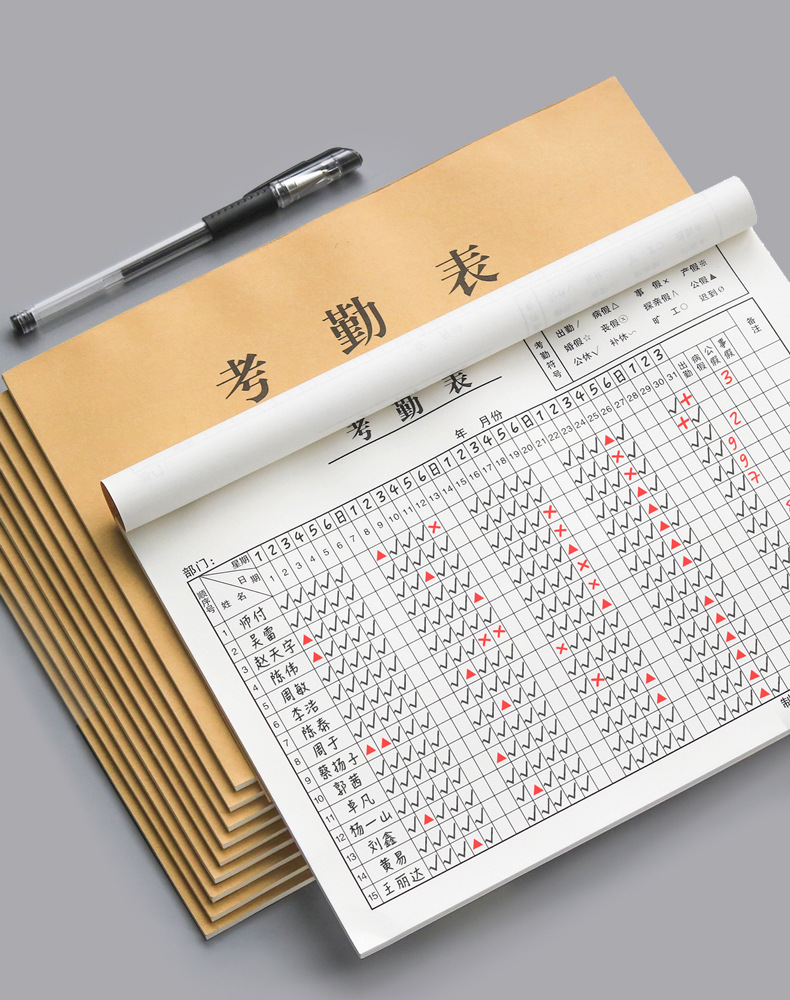 考勤表
考勤表
年 月份
考勤符号
出勤/ 病假△ 事假× 产假※
婚假☆ 丧假ⓧ 探亲假∧ 公假▲
公休√ 补休﹏ 旷工○ 迟到∅
部门:
星期 1 2 3 4 5 6 日 1 2 3 4 5 6 日 1 2 3 4 5 6 日 1 2 3 4 5 6 日 1 2 3 出勤 病假 公假 事假 备注
日期 1 2 3 4 5 6 7 8 9 10 11 12 13 14 15 16 17 18 19 20 21 22 23 24 25 26 27 28 29 30 31
顺序号 姓名
1 师付
2 吴雷
3 赵天宇
4 陈伟
5 周敏
6 李浩
7 陈泰
8 周于
9 蔡扬子
10 郭茜
11 卓凡
12 杨一山
13 刘鑫
14 黄易
15 王丽达
3
2
9
9
7
制